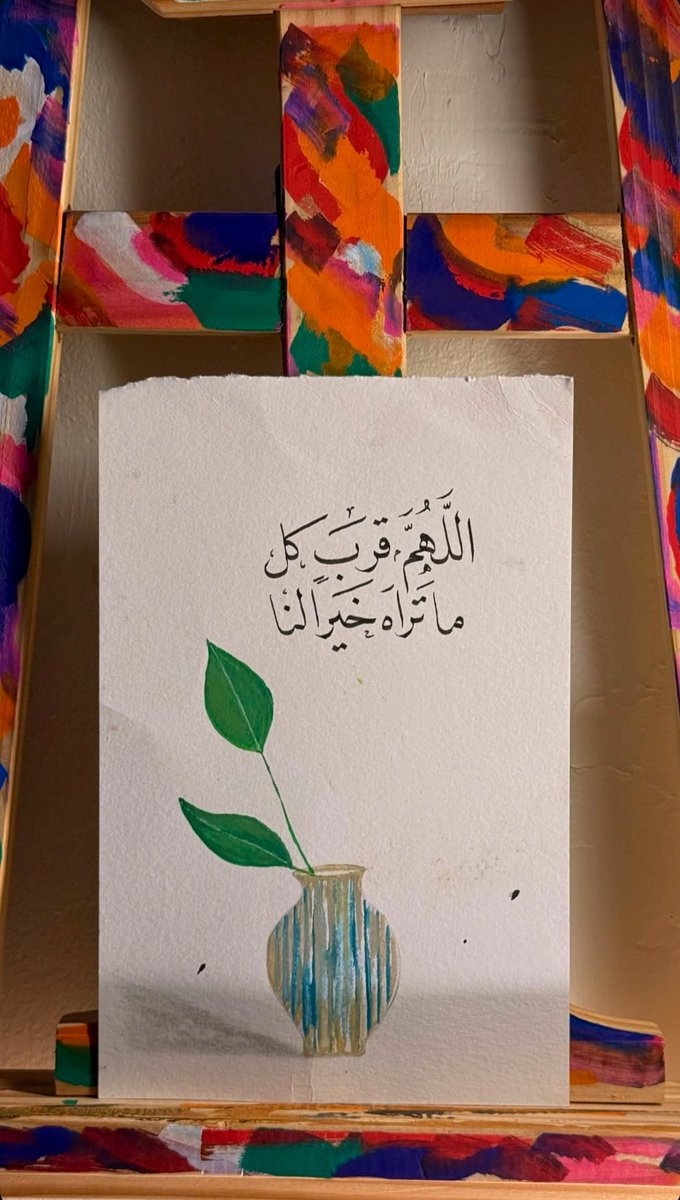 اللَّهُمَّ قربَ كل
ما تَراَه خَيراً لنا